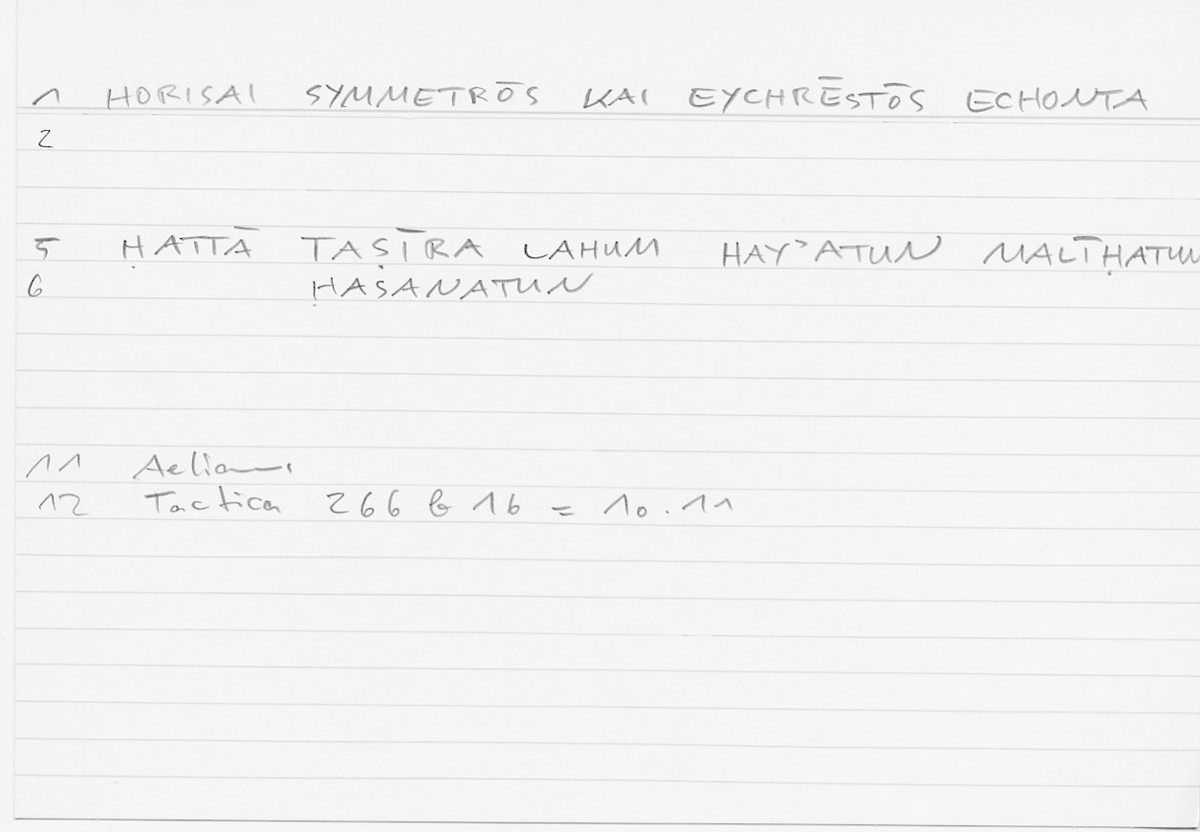 1 HORISAI SYMMETRŌS KAI EYCHRĒSTŌS ECHONTA
2
5 ḤATTĀ TAṢĪRA LAHUM HAY'ATUN MALĪḤATUN
6 ḤAṢANATUN
11 Aelianus
12 Tactica 266 b 16 = 10.11